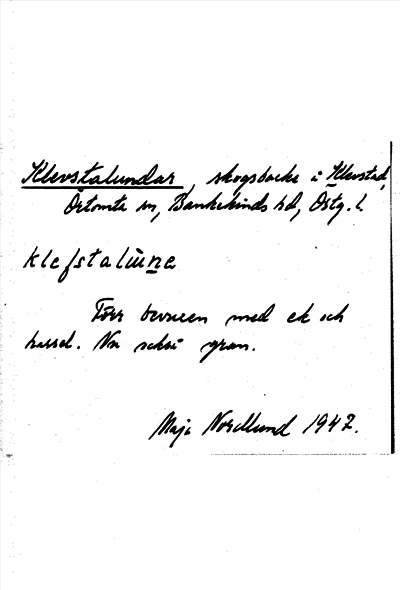 Klevstalundar, skogsbacke i Klevstad,
Örtomta sn, Bankekinds hd, Östg. l.
klefstalune
Förr bevuxen med ek och
hassel. Nu också gran.
Maja Nordlund 1947.